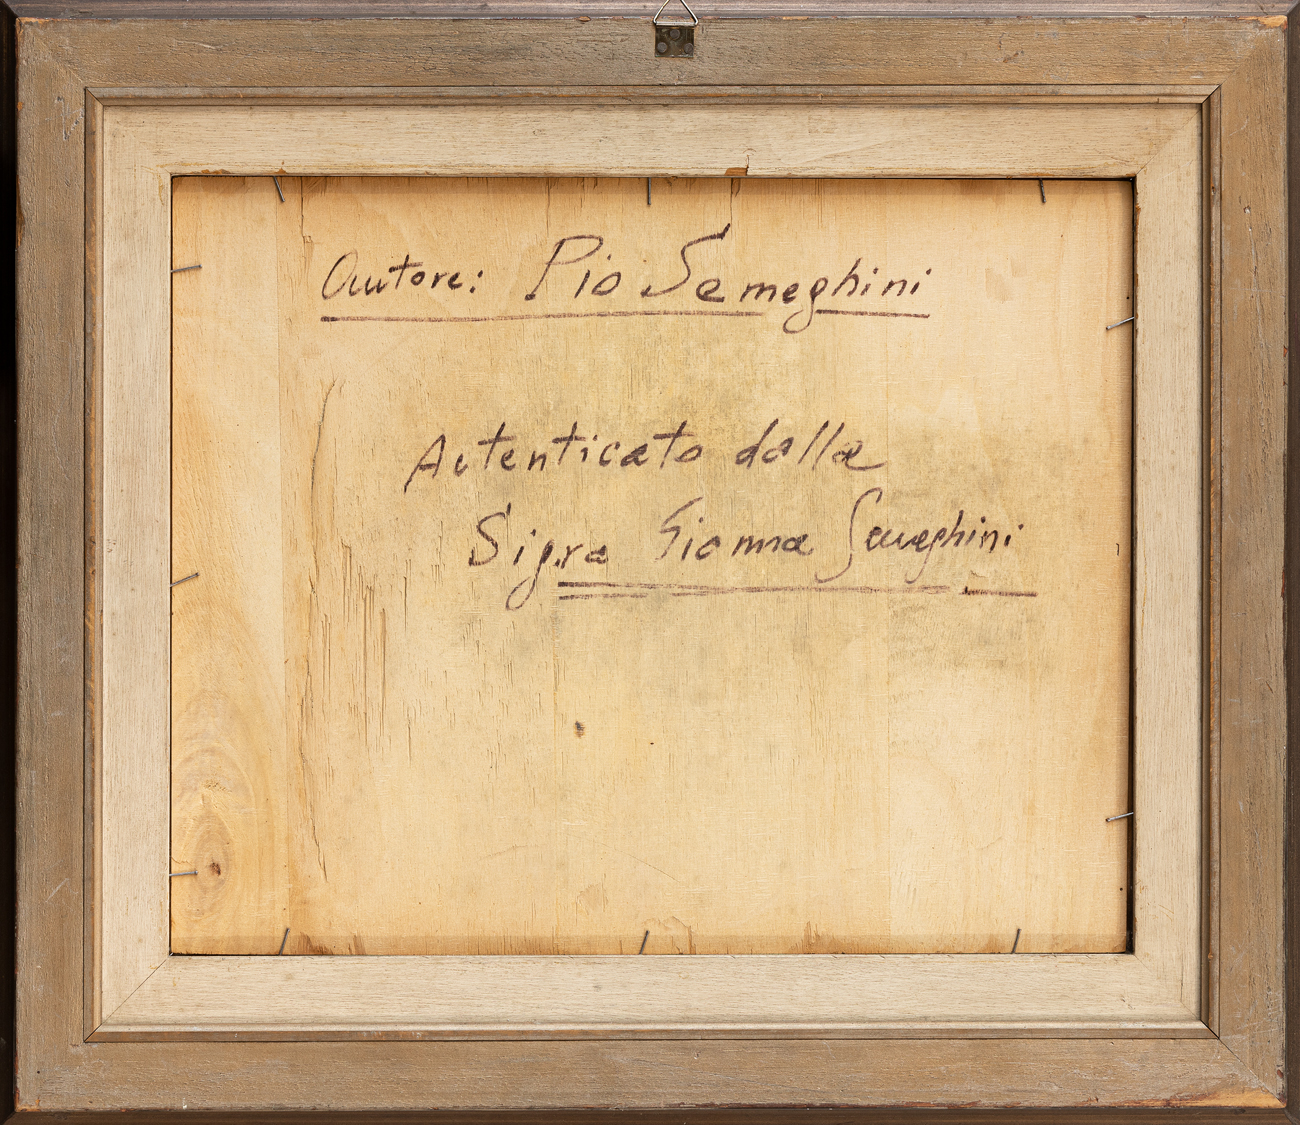 Autore: Pio Semeghini
Autenticato dalla
Sig.ra Gianna Semeghini